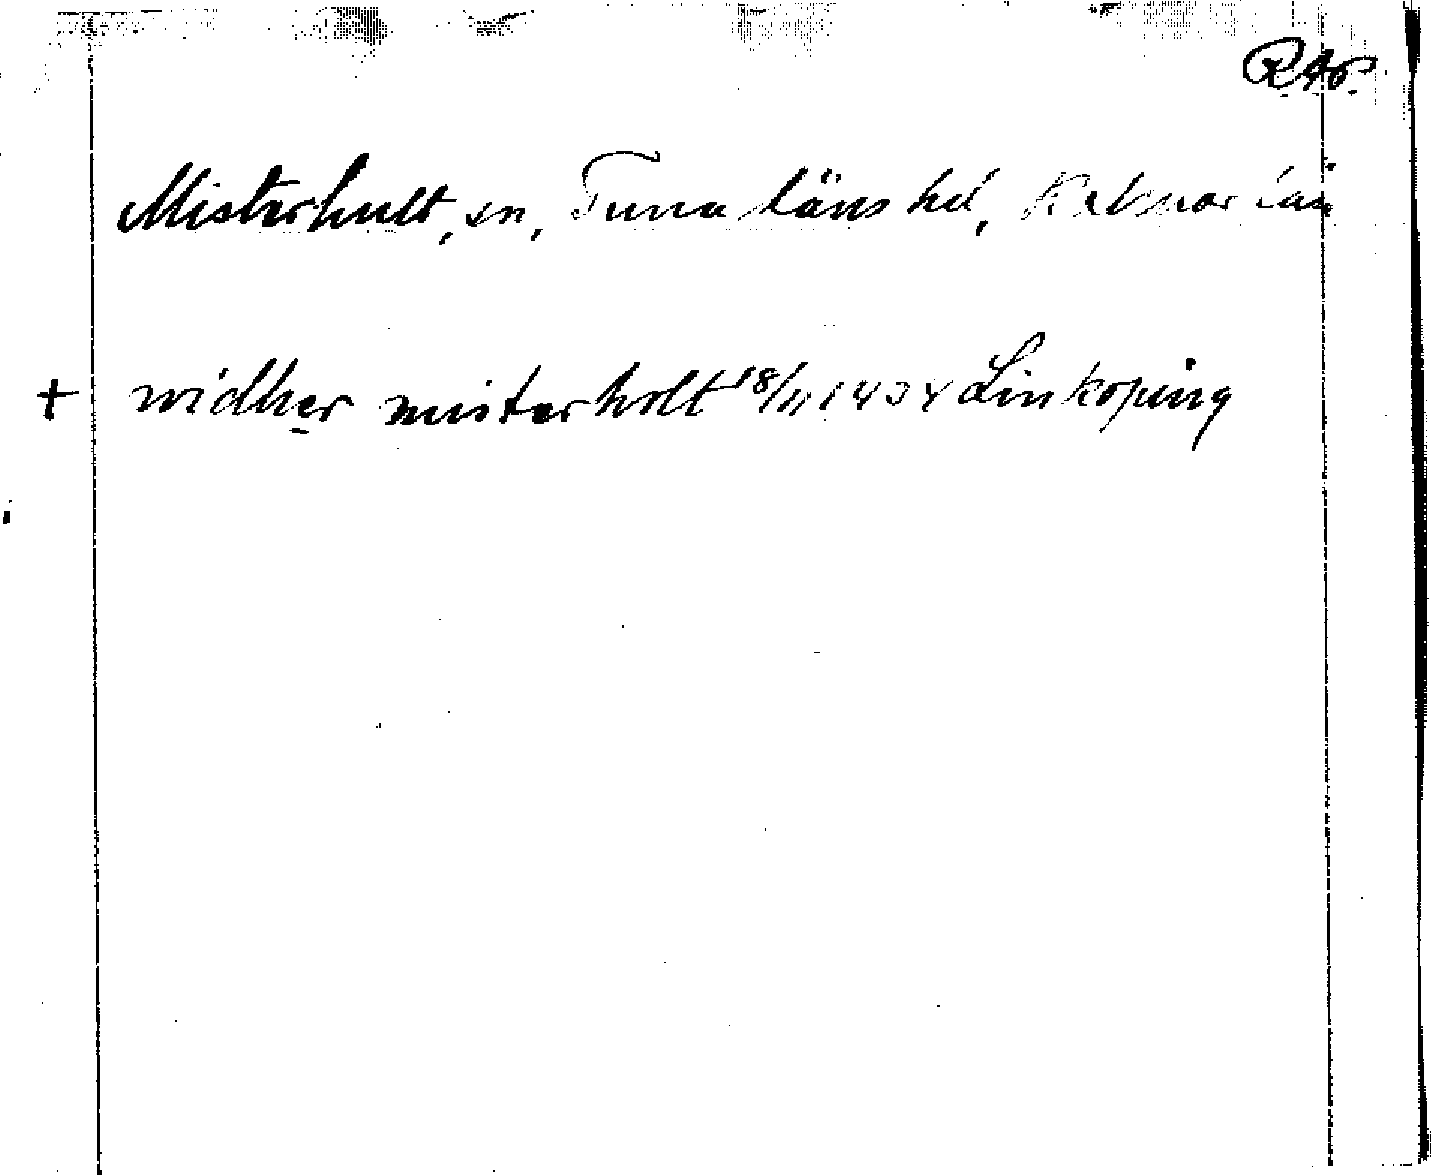 RAp.
Misterhult, sn, Tuna läns hd, Kalmar län
+ widher misterholt 18/11 1434 Linköping